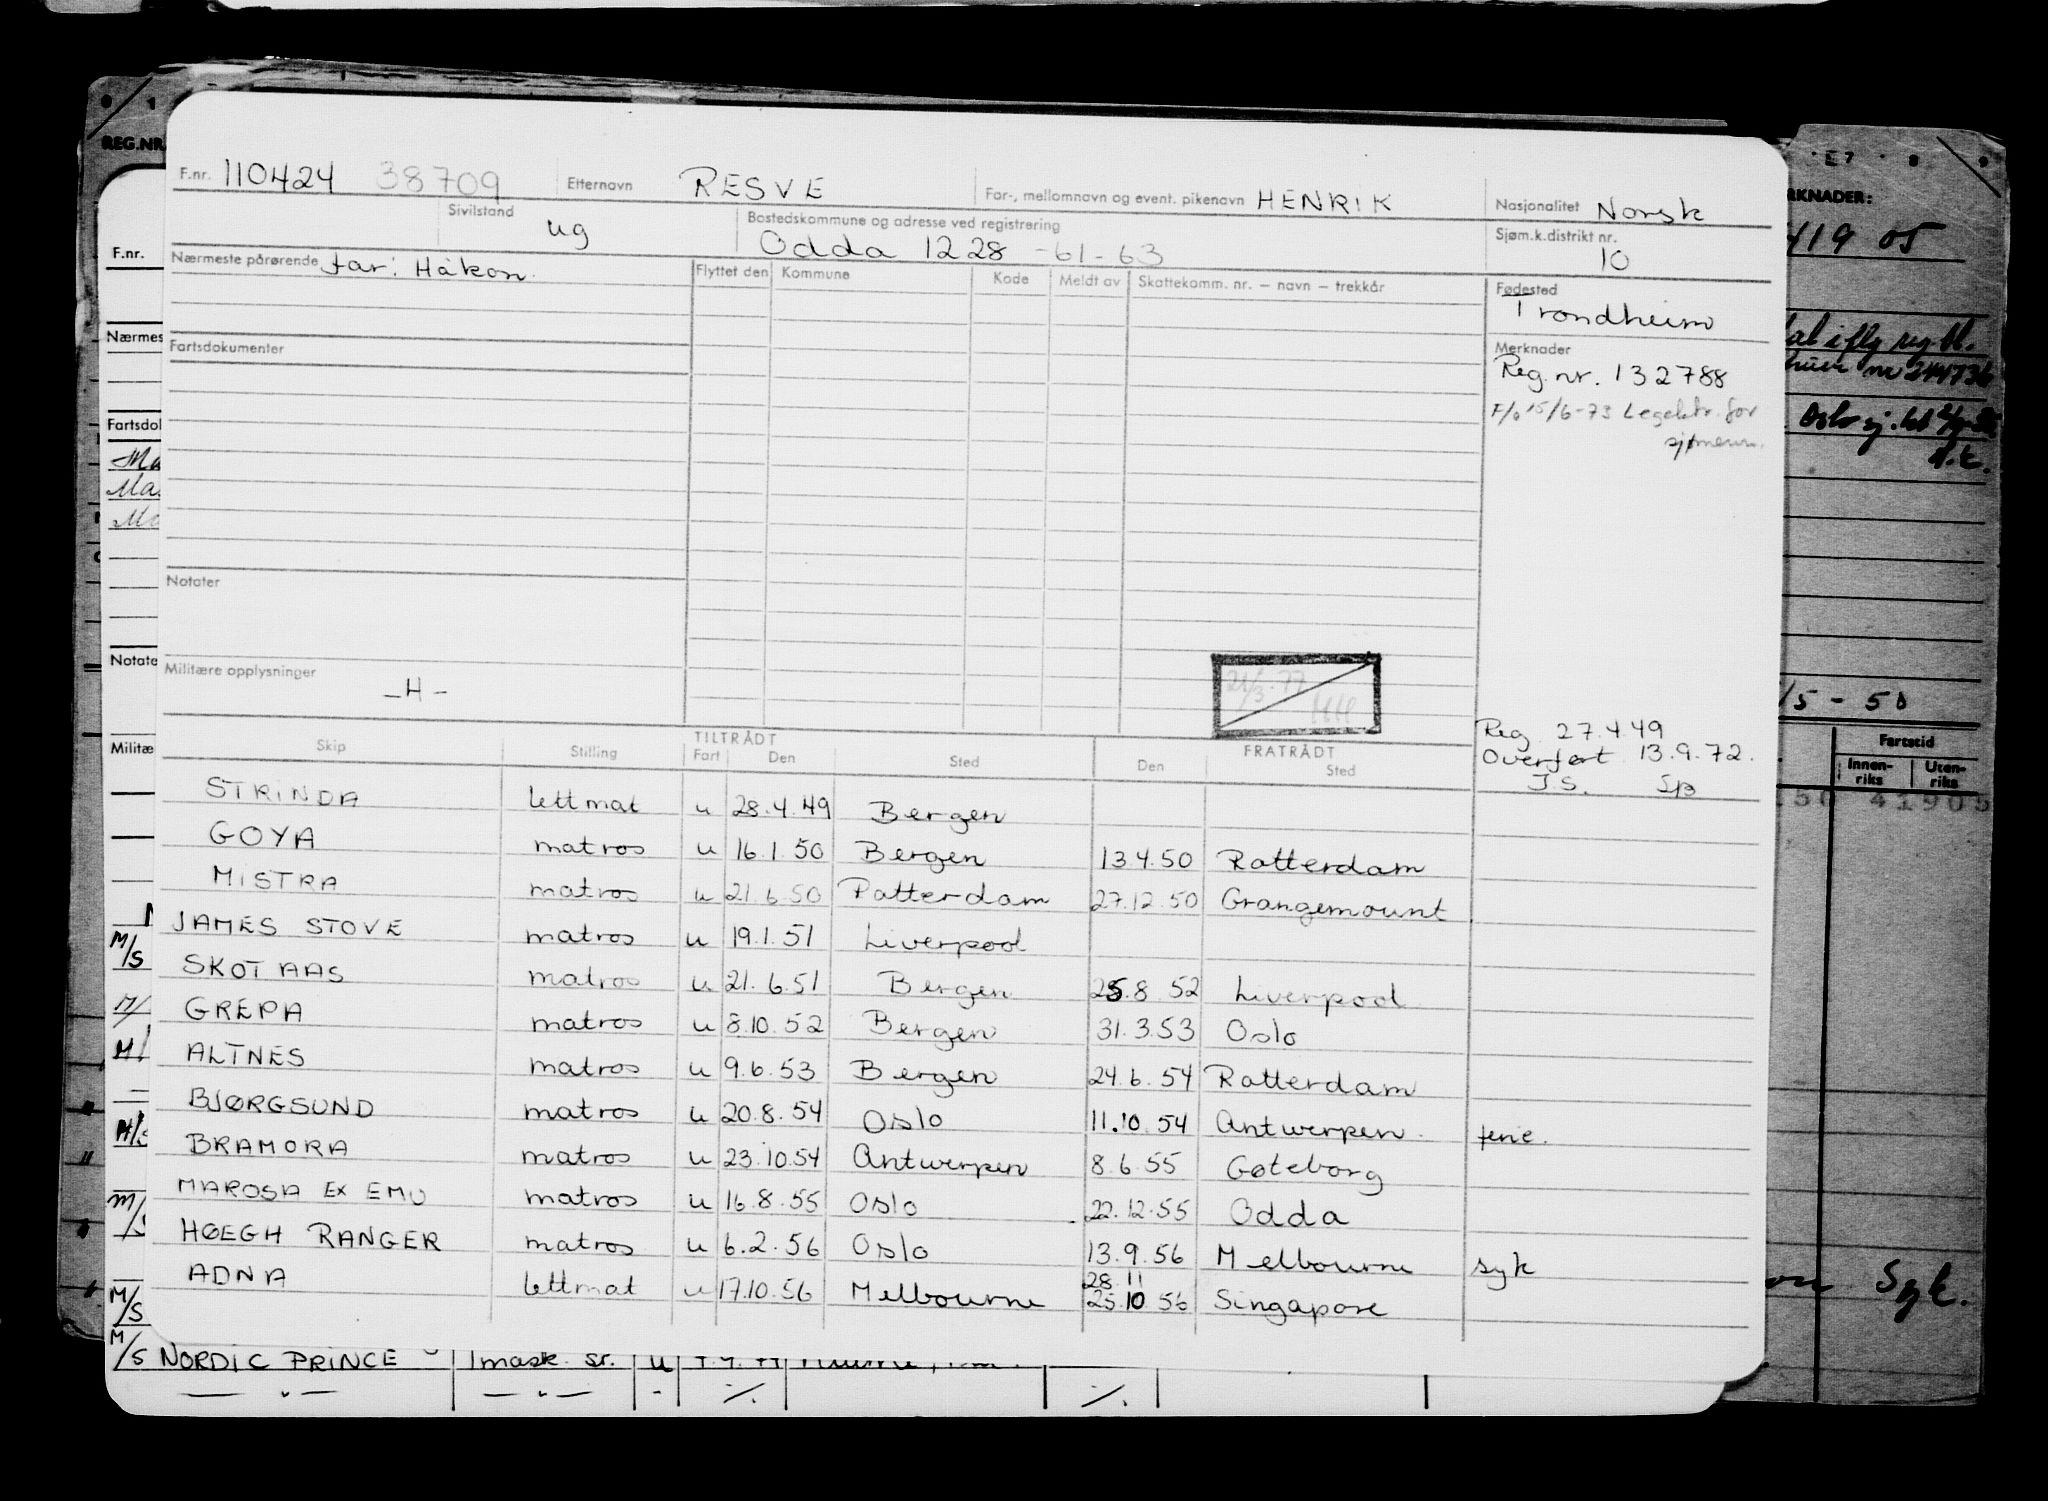 REG.NR.
F.nr. 110424 38709 Etternavn RESVE For-, mellomnavn og event. pikenavn HENRIK Nasjonalitet Norsk
Sivilstand ug Bostedskommune og adresse ved registrering Odda 1228 -61-63 Sjøm.k.distrikt nr. 10
Nærmeste pårørende far: Håkon. Flyttet den Kommune Kode Meldt av Skattekomm. nr. — navn — trekkår Fødested
Trondheim
Fartsdokumenter Merknader
Reg. nr. 132788
F/o 15/6-73 Legektr. for
sjømenn.
Notater
Militære opplysninger -H-
21/3-77
HH
Reg. 27.4.49
Overført 13.9.72.
J.S.
TILTRÅDT FRATRÅDT
Skip Stilling Fart Den Sted Den Sted
STRINDA lettmat u 28.4.49 Bergen
GOYA matros u 16.1.50 Bergen 13.4.50 Rotterdam
MISTRA matros u 21.6.50 Rotterdam 27.12.50 Grangemount
JAMES STOVE matros u 19.1.51 Liverpool
SKOTAAS matros u 21.6.51 Bergen 25.8.52 Liverpool
GREPA matros u 8.10.52 Bergen 31.3.53 Oslo
ALTNES matros u 9.6.53 Bergen 24.6.54 Rotterdam
BJØRGSUND matros u 20.8.54 Oslo 11.10.54 Antwerpen. ferie.
BRAMORA matros u 23.10.54 Antwerpen 8.6.55 Gøteborg
MAROSA EX EMU matros u 16.8.55 Oslo 22.12.55 Odda
HØEGH RANGER matros u 6.2.56 Oslo 13.9.56 Melbourne syk
ADNA lettmat u 17.10.56 Melbourne 28.11 25.10 56 Singapore
M/S NORDIC PRINCE 1mask. sr. u
F.nr.
Nærmes
Fartsdol
Notate
Militæ
M/S
M/S
RKNADER:
419 05
nr 244736
/5-50
Fartstid
Innen-riks Uten-riks
150 41905
Syk.